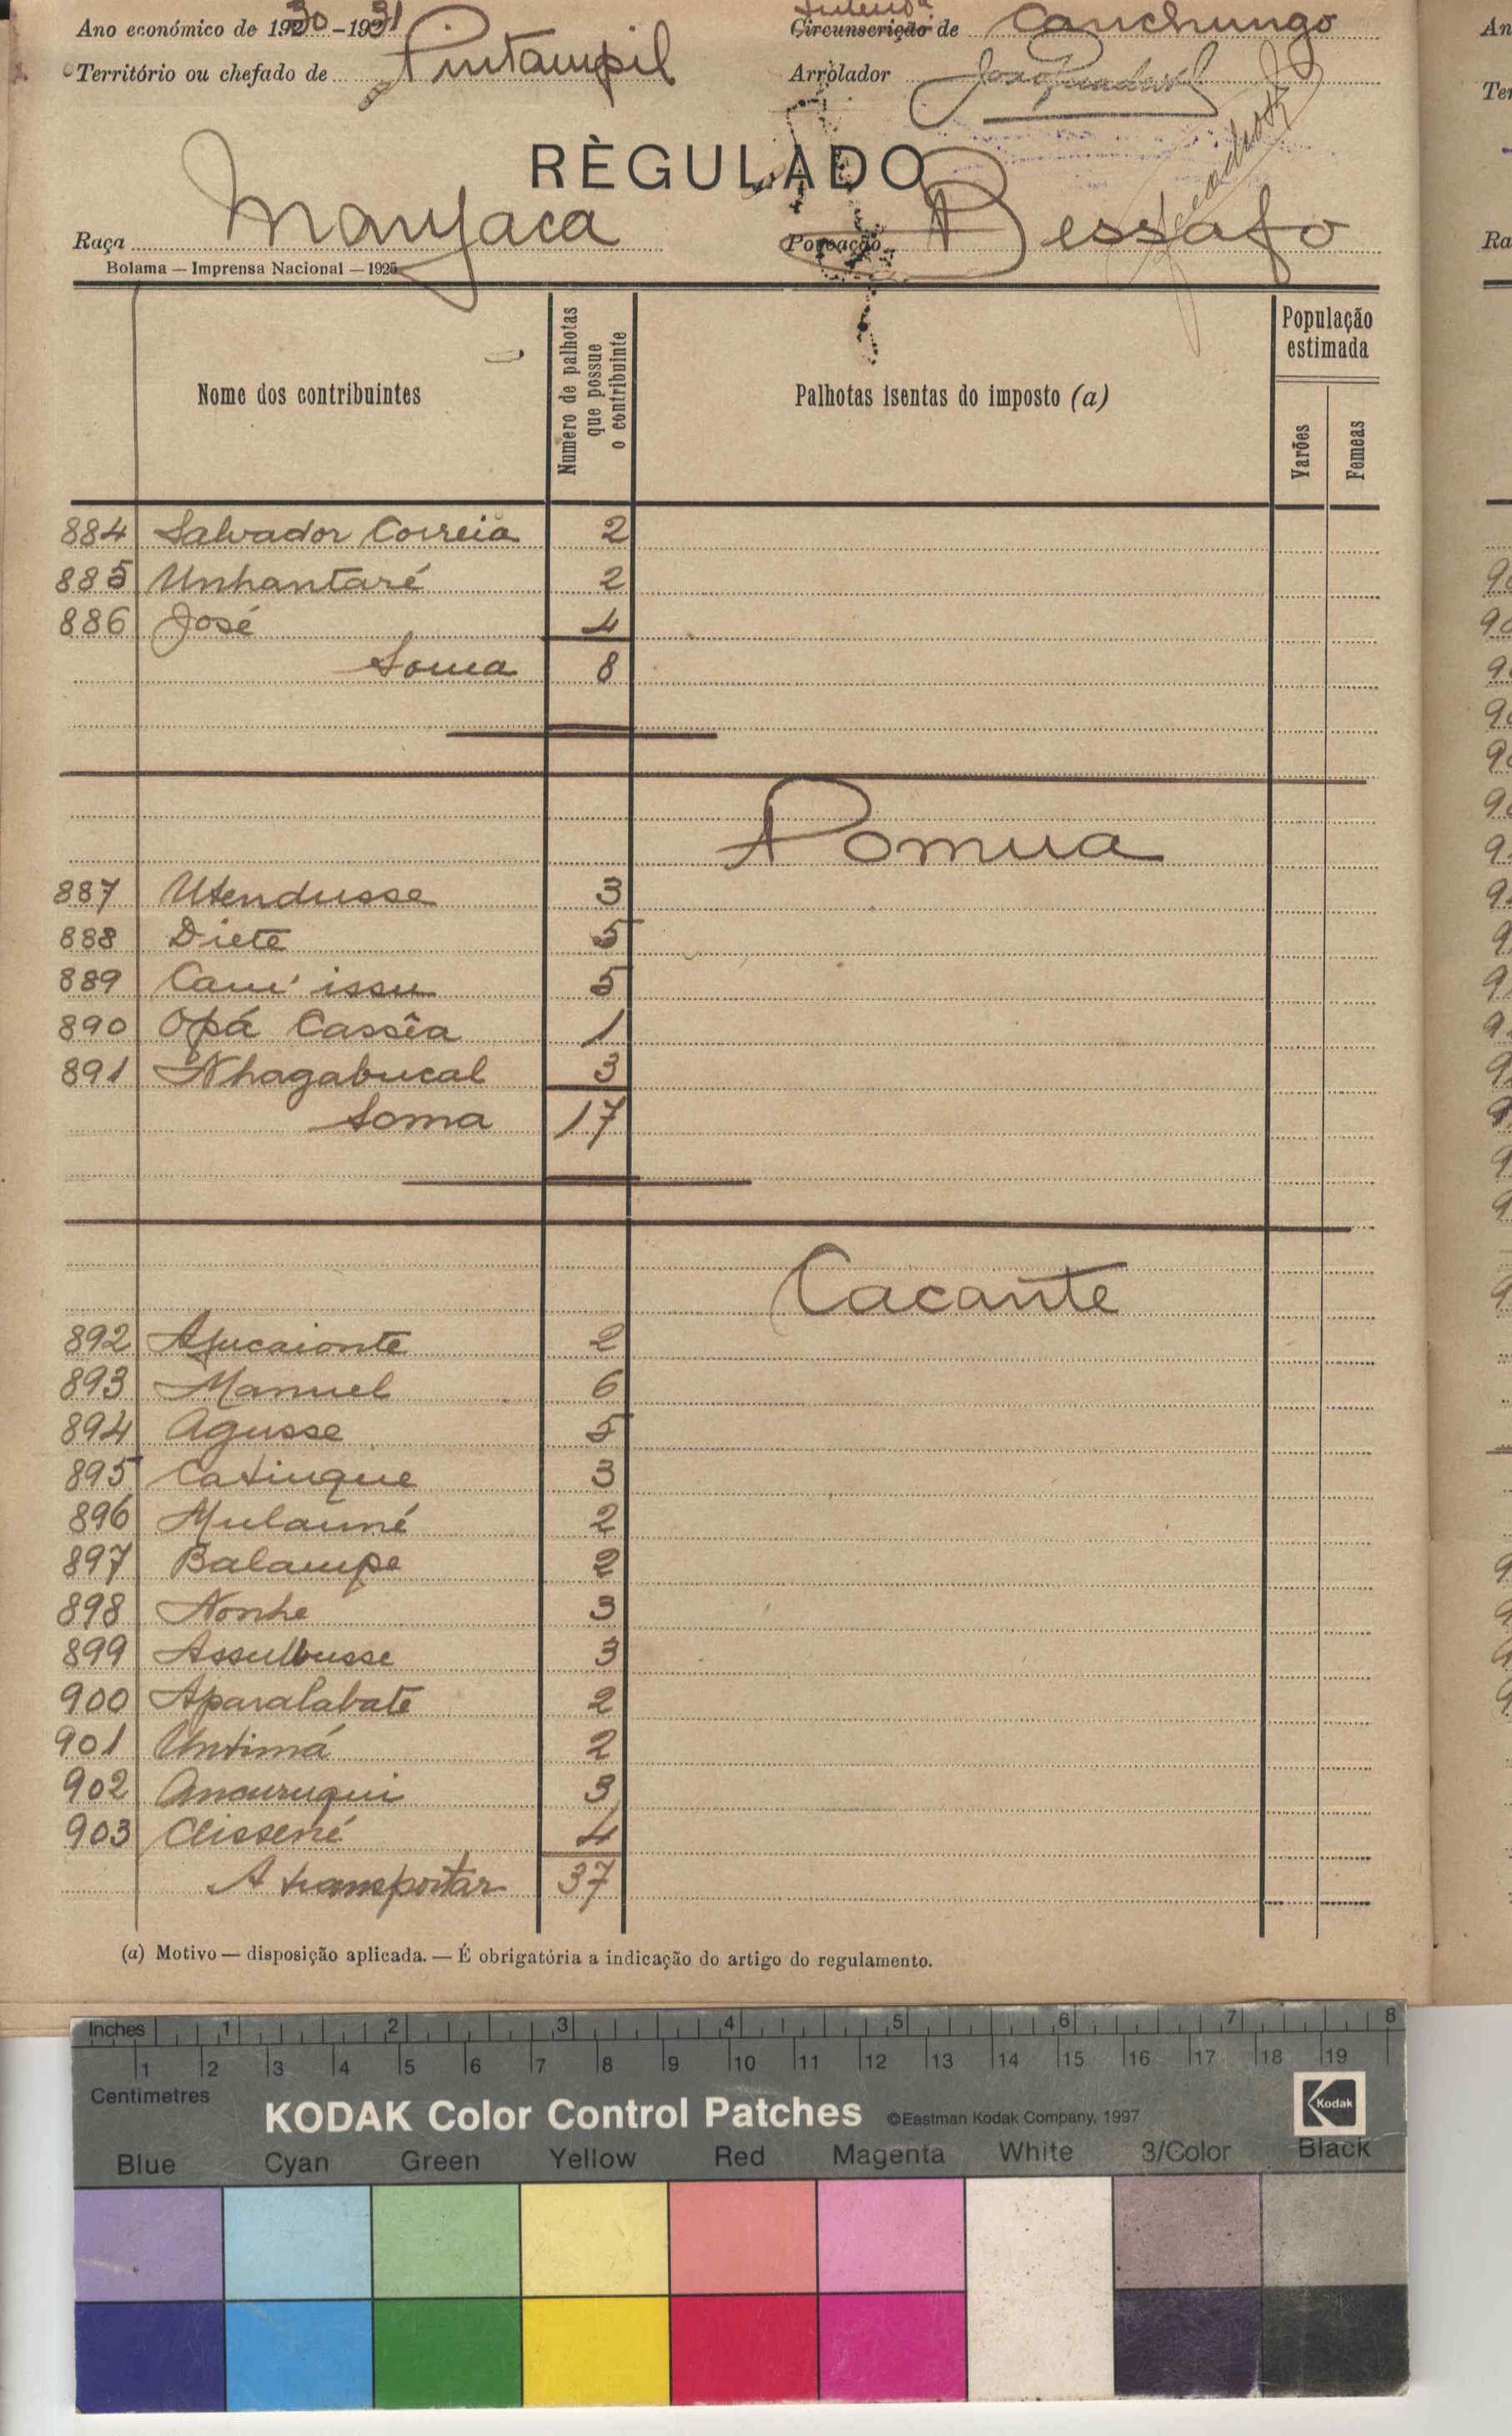 Ano económico de 1930-1931 Circunscrição de Canchungo
Território ou chefado de Pintampil Arrolador
RÈGULADO
Raça Manjaca Povoação Bessafo
Bolama — Imprensa Nacional — 1925
Nome dos contribuintes
Numero de palhotas que possue o contribuinte
Palhotas isentas do imposto (a)
População estimada
Varões Femeas
884 Salvador Correia 2
885 Unhantaré 2
886 José 4
Soma 8
Pomua
887 Utendusse 3
888 Diete 5
889 Cam' issu 5
890 Opá Cassêa 1
891 Nhagabucal 3
Soma 17
Cacante
892 Afucaionte 2
893 Manuel 6
894 Agusse 5
895 Catinque 3
896 Mulaimé 2
897 Balampe 2
898 Nonhe 3
899 Assulbusse 3
900 Aparalabate 2
901 Untimá 2
902 Ancuruqui 3
903 Clissené 4
A transportar 37
(a) Motivo — disposição aplicada. — É obrigatória a indicação do artigo do regulamento.
Inches 1 2 3 4 5 6 7 8
1 2 3 4 5 6 7 8 9 10 11 12 13 14 15 16 17 18 19
Centimetres
KODAK Color Control Patches ©Eastman Kodak Company, 1997 Kodak
Blue Cyan Green Yellow Red Magenta White 3/Color Black